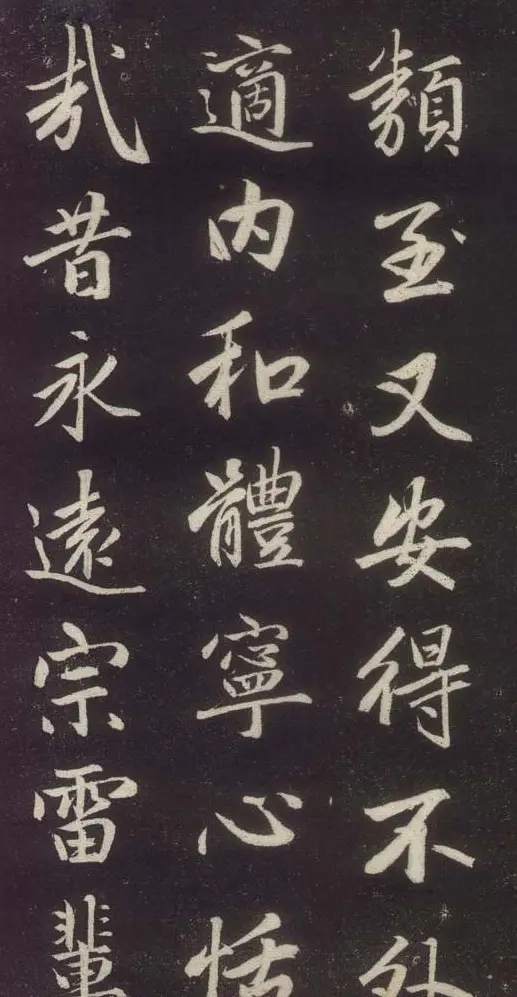 類至又安得不外
適內和體寧心恬
哉昔永遠宗雷輩